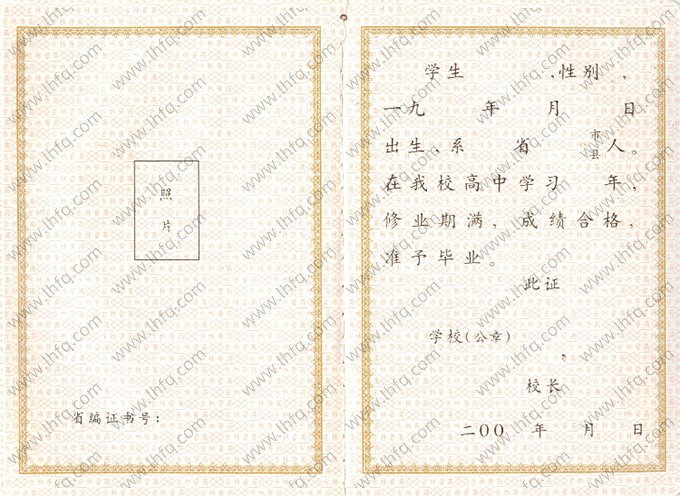 照
片
省编证书号：
学生　　　，性别　，
一九　　年　　月　　日
出生，系　　省　　市县人。
在我校高中学习　年，
修业期满，成绩合格，
准予毕业。
此证
学校（公章）
校长
二00　年　月　日
www.lhfq.com